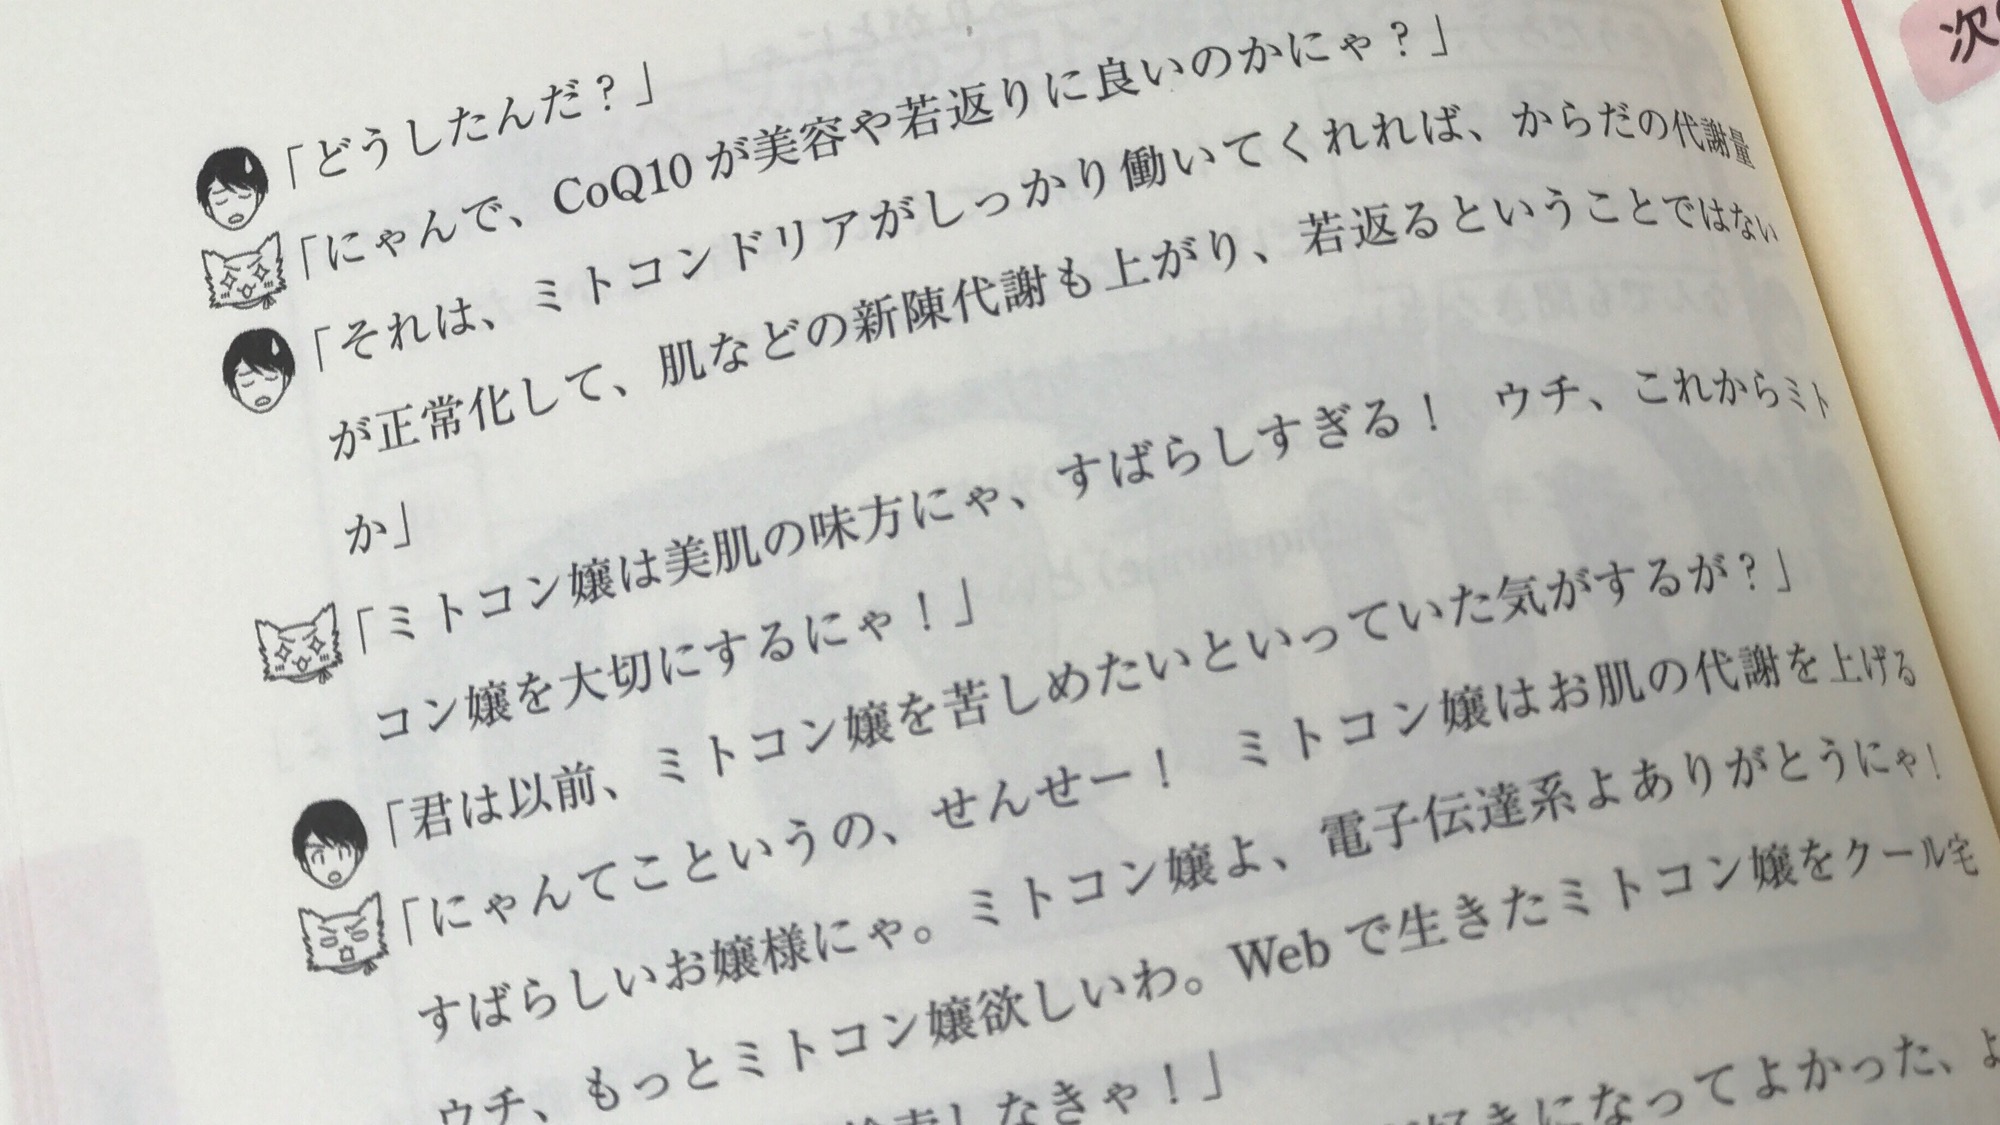 「どうしたんだ？」
「にゃんで、CoQ10 が美容や若返りに良いのかにゃ？」
「それは、ミトコンドリアがしっかり働いてくれれば、からだの代謝量
が正常化して、肌などの新陳代謝も上がり、若返るということではない
か」
「ミトコン嬢は美肌の味方にゃ、すばらしすぎる！　ウチ、これからミト
コン嬢を大切にするにゃ！」
「君は以前、ミトコン嬢を苦しめたいといっていた気がするが？」
「にゃんてこというの、せんせー！　ミトコン嬢はお肌の代謝を上げる
すばらしいお嬢様にゃ。ミトコン嬢よ、電子伝達系よありがとうにゃ！
ウチ、もっとミトコン嬢欲しいわ。Web で生きたミトコン嬢をクール宅
検索しなきゃ！」
好きになってよかった、よ
次